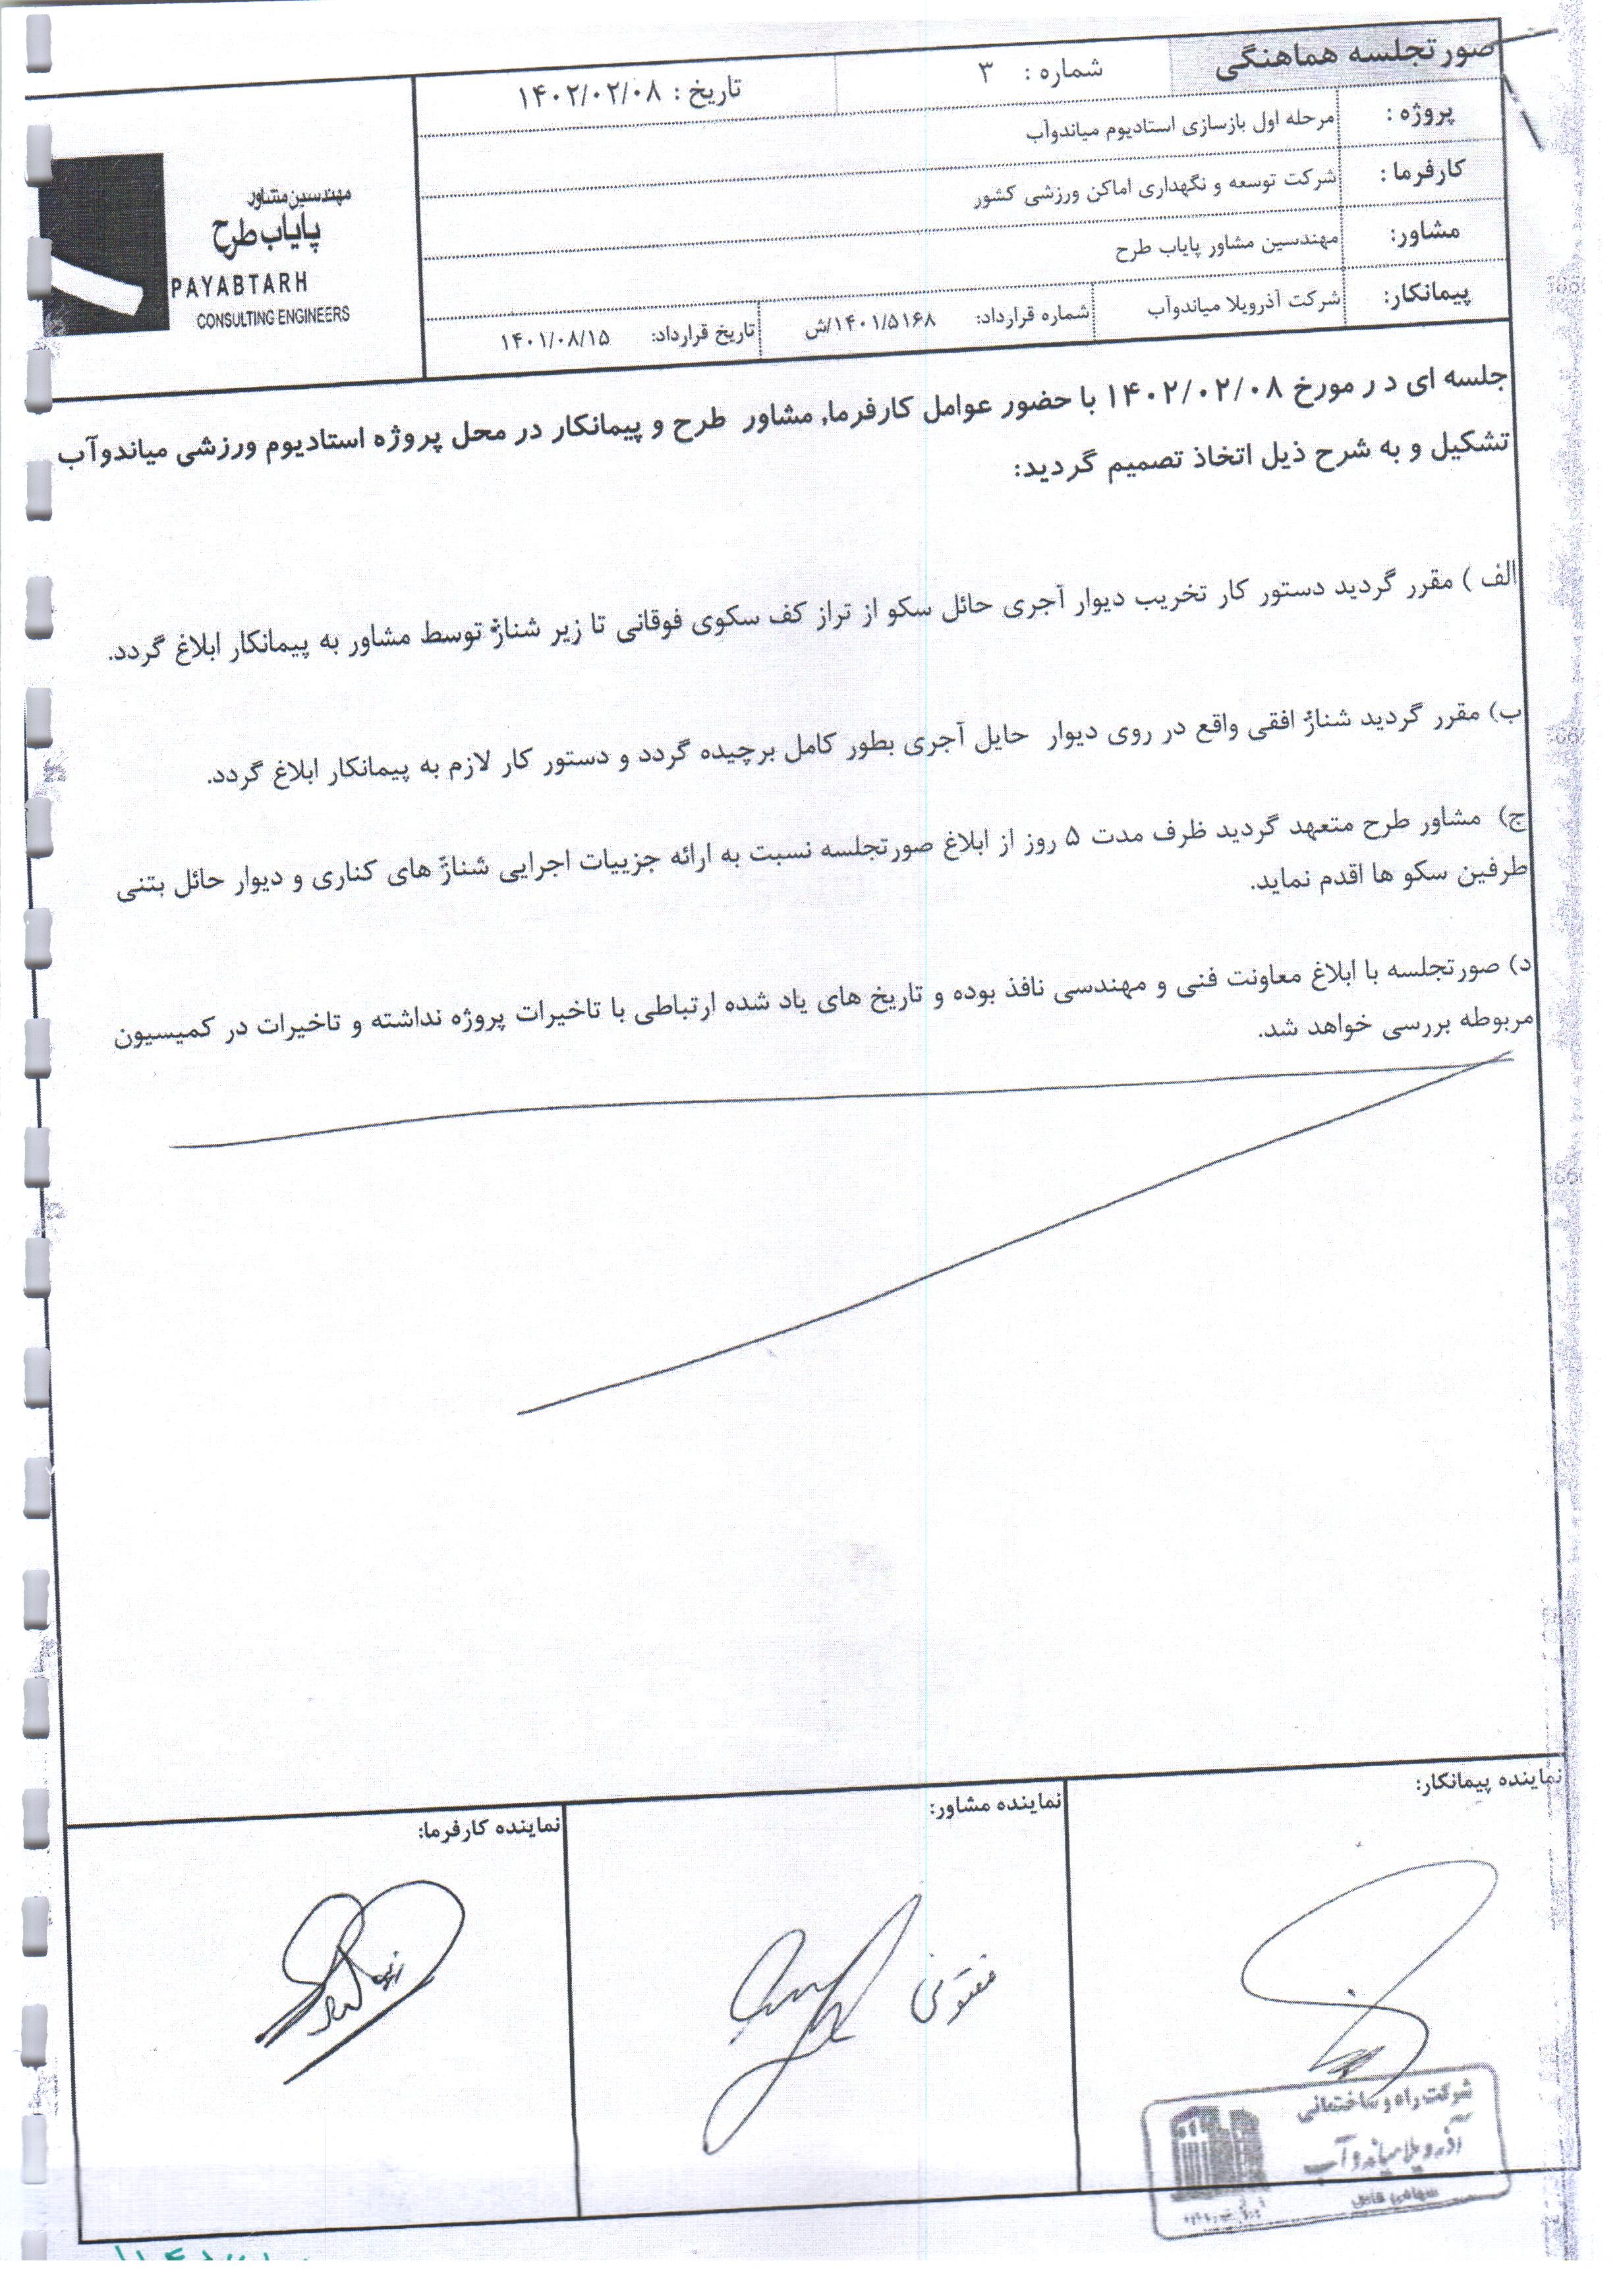 صورتجلسه هماهنگی
شماره : ۳
تاریخ : ۱۴۰۲/۰۲/۰۸
پروژه : مرحله اول بازسازی استادیوم میاندوآب
کارفرما : شرکت توسعه و نگهداری اماکن ورزشی کشور
مشاور: مهندسین مشاور پایاب طرح
پیمانکار: شرکت آذرویلا میاندوآب شماره قرارداد: ۱۴۰۱/۵۱۶۸/ش تاریخ قرارداد: ۱۴۰۱/۰۸/۱۵
مهندسین مشاور
پایاب طرح
PAYABTARH
CONSULTING ENGINEERS
جلسه ای د ر مورخ ۱۴۰۲/۰۲/۰۸ با حضور عوامل کارفرما, مشاور طرح و پیمانکار در محل پروژه استادیوم ورزشی میاندوآب
تشکیل و به شرح ذیل اتخاذ تصمیم گردید:
الف ) مقرر گردید دستور کار تخریب دیوار آجری حائل سکو از تراز کف سکوی فوقانی تا زیر شناژ توسط مشاور به پیمانکار ابلاغ گردد.
ب) مقرر گردید شناژ افقی واقع در روی دیوار حایل آجری بطور کامل برچیده گردد و دستور کار لازم به پیمانکار ابلاغ گردد.
ج) مشاور طرح متعهد گردید ظرف مدت ۵ روز از ابلاغ صورتجلسه نسبت به ارائه جزییات اجرایی شناژ های کناری و دیوار حائل بتنی
طرفین سکو ها اقدم نماید.
د) صورتجلسه با ابلاغ معاونت فنی و مهندسی نافذ بوده و تاریخ های یاد شده ارتباطی با تاخیرات پروژه نداشته و تاخیرات در کمیسیون
مربوطه بررسی خواهد شد.
نماینده پیمانکار:
نماینده مشاور:
نماینده کارفرما:
شرکت راه و ساختمانی
آذرویلا میاندوآب
سهامی خاص